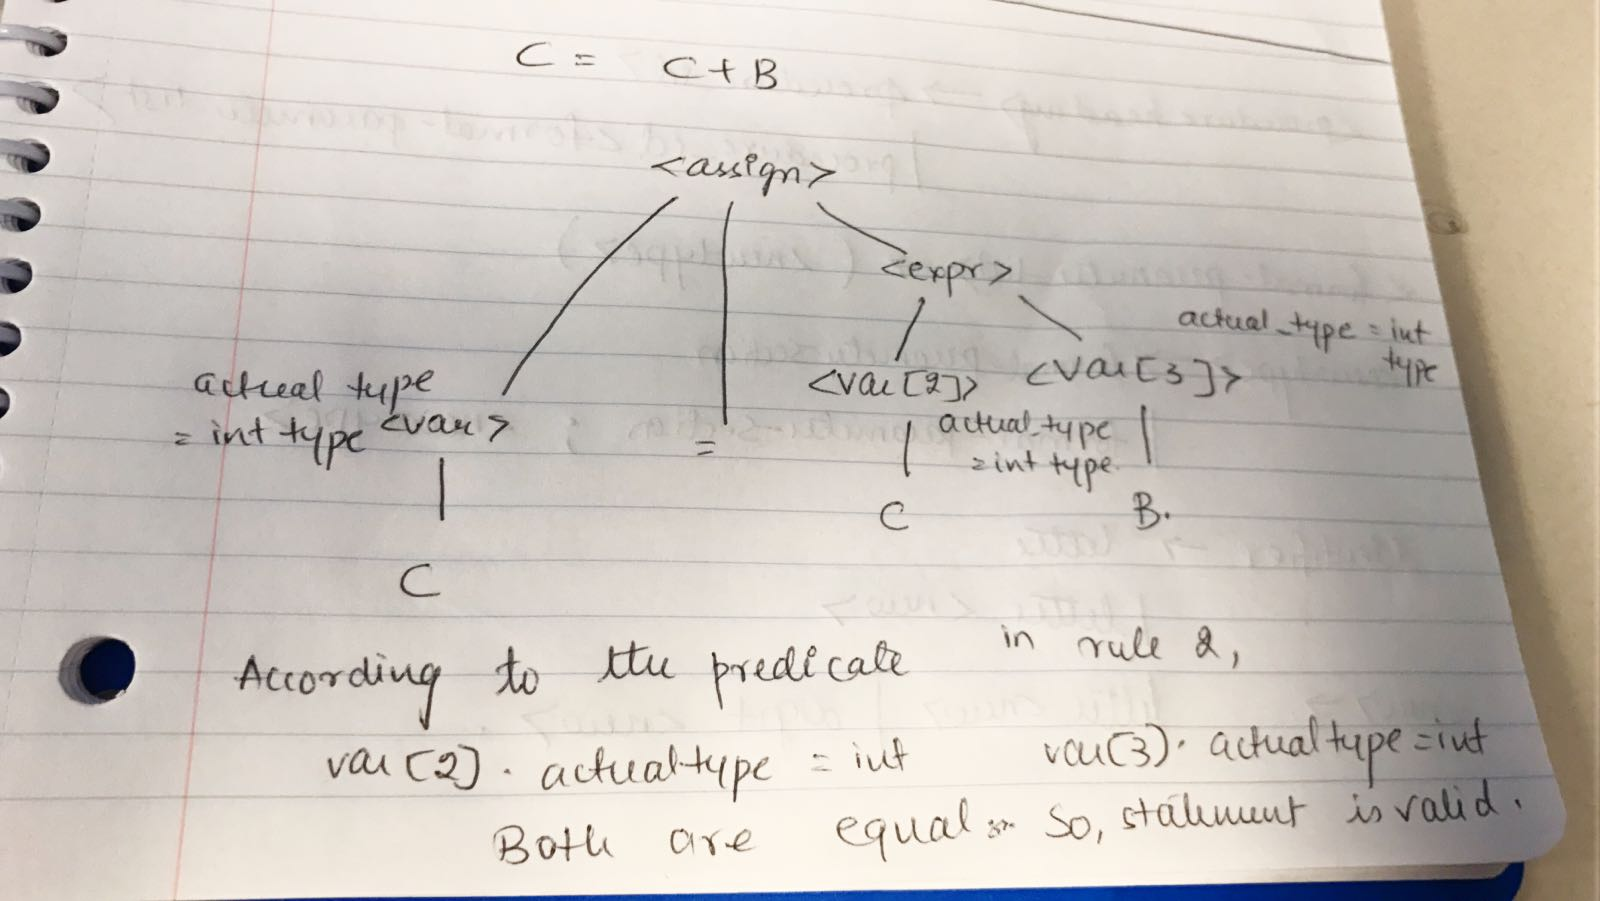 C = C+B
<assign>
<expr>
actual_type = int
type
<var[2]> <var[3]>
actual type
= int type <var>
=
actual_type
= int type.
C B.
C
According to the predicate in rule 2,
var[2]. actualtype = int var(3). actualtype = int
Both are equal So, statement is valid.